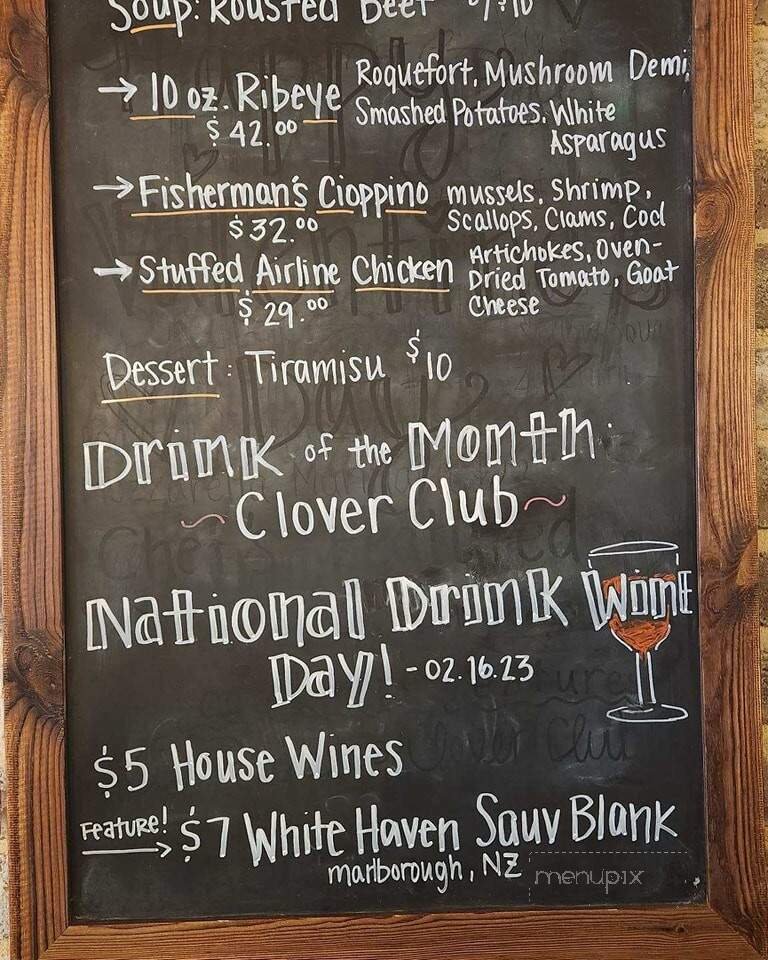 Soup: Roasted Beet
→ 10 oz. Ribeye Roquefort, Mushroom Demi,
$42.00 Smashed Potatoes, White
Asparagus
→ Fisherman's Cioppino mussels, Shrimp,
$32.00 Scallops, Clams, Cod
→ Stuffed Airline Chicken Artichokes, Oven-
$29.00 Dried Tomato, Goat
Cheese
Dessert: Tiramisu $10
Drink of the Month:
~Clover Club~
National Drink Wine
Day! - 02.16.23
$5 House Wines
Feature! → $7 White Haven Sauv Blank
marlborough, NZ
menupix